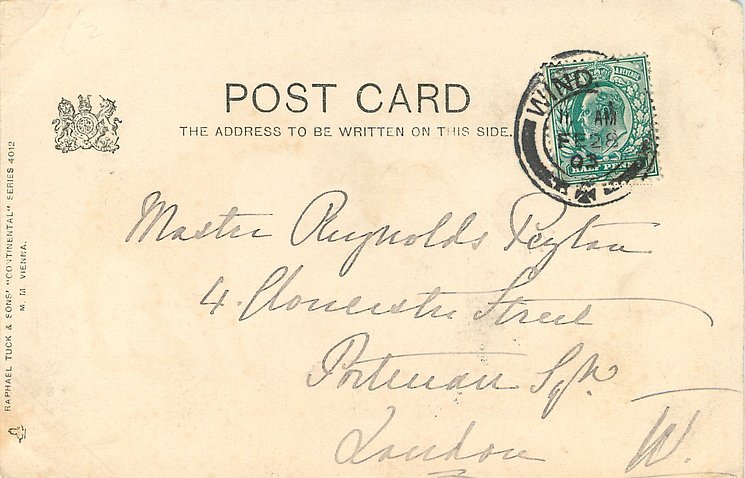 POST CARD
THE ADDRESS TO BE WRITTEN ON THIS SIDE.
WIND
11 AM
FE 28
03
HALF PENNY
Master Reynolds Peyton
4. Gloucester Street
Portman Sqre
London W.
RAPHAEL TUCK & SONS' "CONTINENTAL" SERIES 4012
M. M. VIENNA.